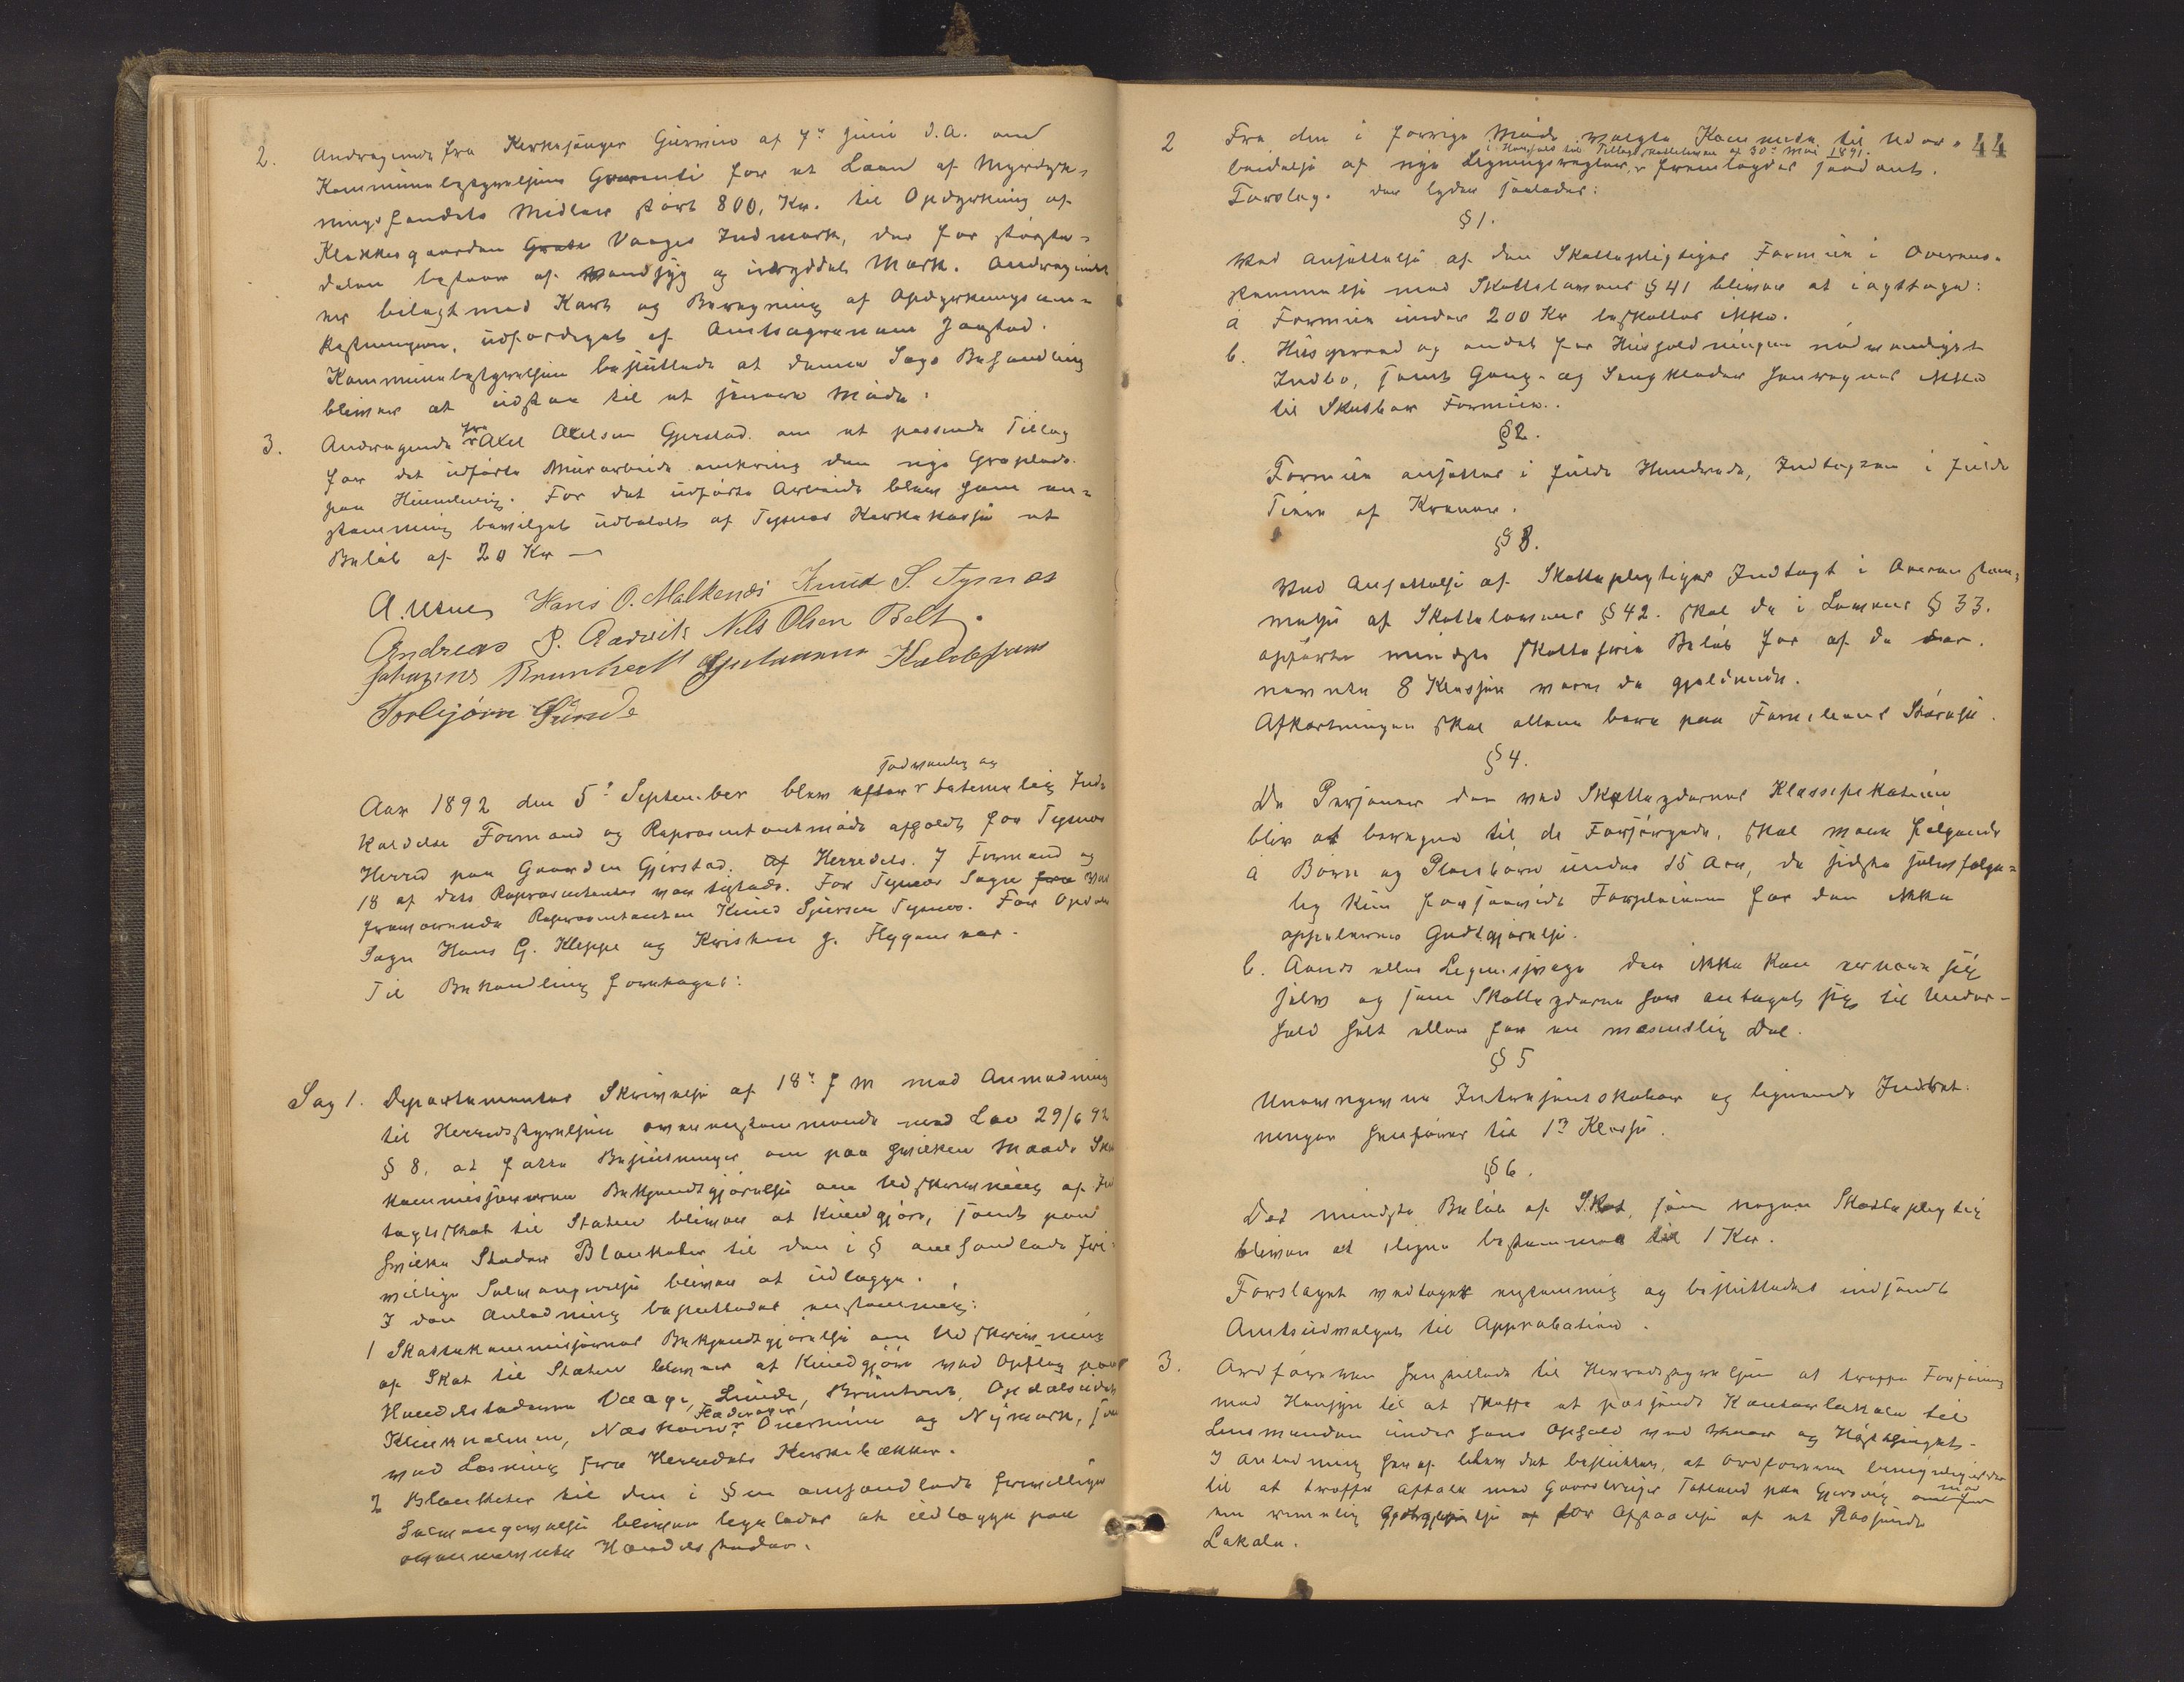 2. Andragende fra Kirkesanger Gjersvin af 7de juni d.A. om
Kommunebestyrelsens Garanti for et Laan af Myrdyrk-
ningsfondets Midler stort 800, Kr. til Opdyrkning af
Klokkergaarden Vaages Indmark, der for største-
delen bestaar af vandsyg og uryddet Mark. Andragendet
er bilagt med Kart og Beregning af Opdyrkningsom-
kostningerne, udfærdiget af Amtsagronom Jaastad.
Kommunebestyrelsen besluttede at denne Sags Behandling
bliver at udstaa til et senere Møde.
3. Andragende fra Axel Axelsen Gjerstad om et passende Tillæg
for det udførte Murarbeide omkring den nye Gravplads
paa Hunderig. For det udførte Arbeide blev ham en-
stemmig bevilget udbetalt af Tysnes Kirkekasse et
Beløb af 20 Kr —
A. Uenes Hans O. Malkenes Knud S. Tysnes
Andreas P. Aarvik Nils Olsen Belt.
Johannes Brunhart Hjelmann Kaldefoss
Torbjørn Sunde
Aar 1892 den 5te September blev efter sædvanlig og lovmelig Ind-
kaldelse Formand og Repræsentantmøde afholdt for Tysnes
Herred paa Gaarden Gjerstad. Af Herredets 7 Formænd og
18 af dets Repræsentanter var tilstede. For Tysnes Sogn var
fraværende Repræsentanten Knud Sjursen Tysnes. For Opdals
Sogn Hans G. Kleppe og Kristen J. Flygansvær.
Til Behandling foretoges:
Sag 1. Departementes Skrivelse af 18de f M med Anmodning
til Herredsstyrelsen overensstemmende med Lov 29/6 92
§ 8, at fatte Beslutninger om paa hvilken Maade Skatte
kommissionernes Bekjendtgjørelse om Udskrivning af Ind
tægtsskat til Staten bliver at kundgjøre, samt paa
hvilke Steder Blanketer til den i § omhandlede fri-
villige Selvangivelse bliver at udlægge.
I den Anledning besluttedes enstemmig:
1 Skattekommissionens Bekjendtgjørelse om Udskrivning
af Skat til Staten bliver at kundgjøre ved Opslag paa
Handelsstederne Vaage, Lunde, Bruntveit, Opdalseidet
Klenkholmen, Næshavn, Fladerager, Onersund og Nymark, samt
ved Læsning fra Herredets Kirkebakker.
2 Blanketer til den i § en omhandlede frivillige
Selvangivelse bliver ligeledes at udlægge paa
ovennævnte Handelssteder.
44
2 Fra den i forrige Møde valgte Komite til Udar-
i Henhold til Tillægsskatteloven af 30te Mai 1891.
beidelse af nye Ligningsregler, fremlagdes saadant
Forslag. der lyder saaledes:
§ 1.
Ved Ansættelse af den Skattepligtiges Formue i Overens-
stemmelse med Skattelovens § 41 bliver at iagttage:
a Formue under 200 Kr beskattes ikke.
b. Husgeraad og andet for Husholdningen nødvendigt
Indbo, samt Gang- og Sengklæder henregnes ikke
til Skatbar Formue.
§ 2.
Formue ansættes i fulde Hundrede, Indtægten i fulde
Tiere af Kroner.
§ 3.
Ved Ansættelse af Skattepligtiges Indtægt i Overensstem-
melse af Skattelovens § 42. skal de i Lovens § 33.
opførte mindste skattefrie Beløb for af de der
nævnte 8 Klasser være de gjældende.
Afkortningen skal allene bero paa Familiens Størrelse.
§ 4.
De Personer der ved Skatteydernes Klassifikation
blir at beregne til de Forsørgede, skal være følgende
a Børn og Pleiebørn under 15 Aar, de sidste selvfølge-
lig kun forsaavidt Forpleieren for dem ikke
oppebærer Godtgjørelse.
b. Aands eller Legemssvage der ikke kan ernære sig
selv og som Skatteyderne har antaget sig til Under-
hold helt eller for en væsentlig Del.
§ 5
Interessentskaber og lignende Indret-
ninger henføres til 1ste Klasse.
§ 6.
Det mindste Beløb af Skat, som nogen Skattepligtig
bliver at iligne bestemmes til 1 Kr.
Forslaget vedtoges enstemmig og besluttedes indsendt
Amtsudvalget til Approbation.
3. Ordføreren henstillede til Herredsstyrelsen at træffe Forføining
med Hensyn til at skaffe et passende Kontorlokale til
Lensmanden under hans Ophold ved Skatte og Høsthinget-
I Anledning heraf blev det besluttet, at Ordføreren bemyndigedes
til at træffe Aftale med Gaardbruger Tøkland paa Gjersvig mod
en rimelig Godtgjørelse for Afstaaelse af et Passende
Lokale.